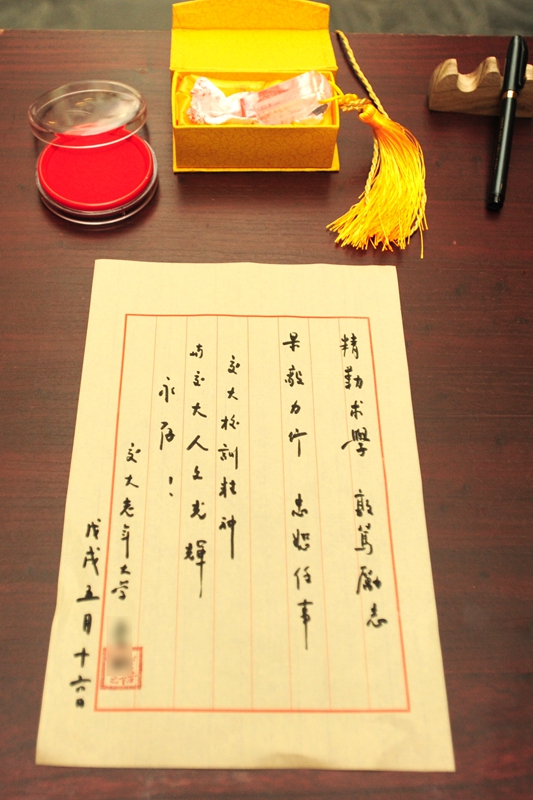 精勤求學 敦篤勵志
果毅力行 忠恕任事
交大校訓精神
交大人文光輝
永存！
交大老年大学
戊戌五月十六日